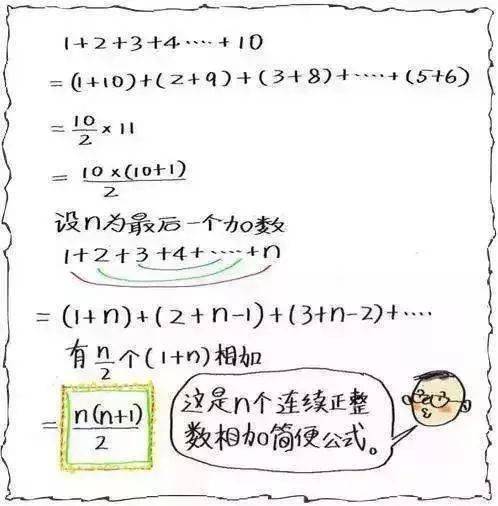 1+2+3+4‧‧‧‧+10
=(1+10)+(2+9)+(3+8)+‧‧‧‧+(5+6)
=10/2×11
=10×(10+1)/2
设n为最后一个加数
1+2+3+4+‧‧‧‧+n
=(1+n)+(2+n-1)+(3+n-2)+‧‧‧‧
有n/2个(1+n)相加
=n(n+1)/2
这是n个连续正整
数相加简便公式。